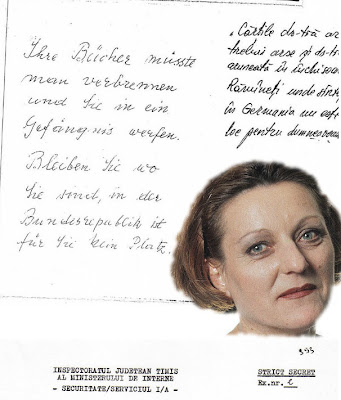 Ihre Bücher müsste
man verbrennen
und Sie in ein
Gefängnis werfen.
Bleiben Sie wo
Sie sind, in der
Bundesrepublik ist
für Sie kein Platz.
„Cărțile dv-tră
trebui arse și dv-tră
aruncată în închisoare
Rămîneți unde
în Germania nu
loc pentru
INSPECTORATUL JUDETEAN TIMIS
AL MINISTERULUI DE INTERNE
- SECURITATE/SERVICIUL I/A -
STRICT SECRET
Ex.nr.